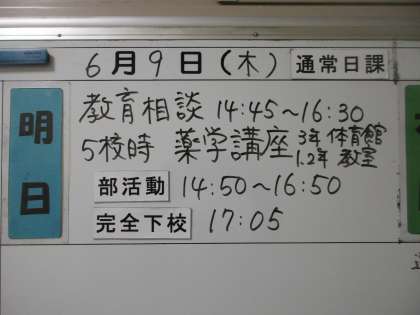 6月9日(木) 通常日課
明日
教育相談 14:45～16:30
5校時 薬学講座 3年 体育館
1.2年 教室
部活動 14:50～16:50
完全下校 17:05